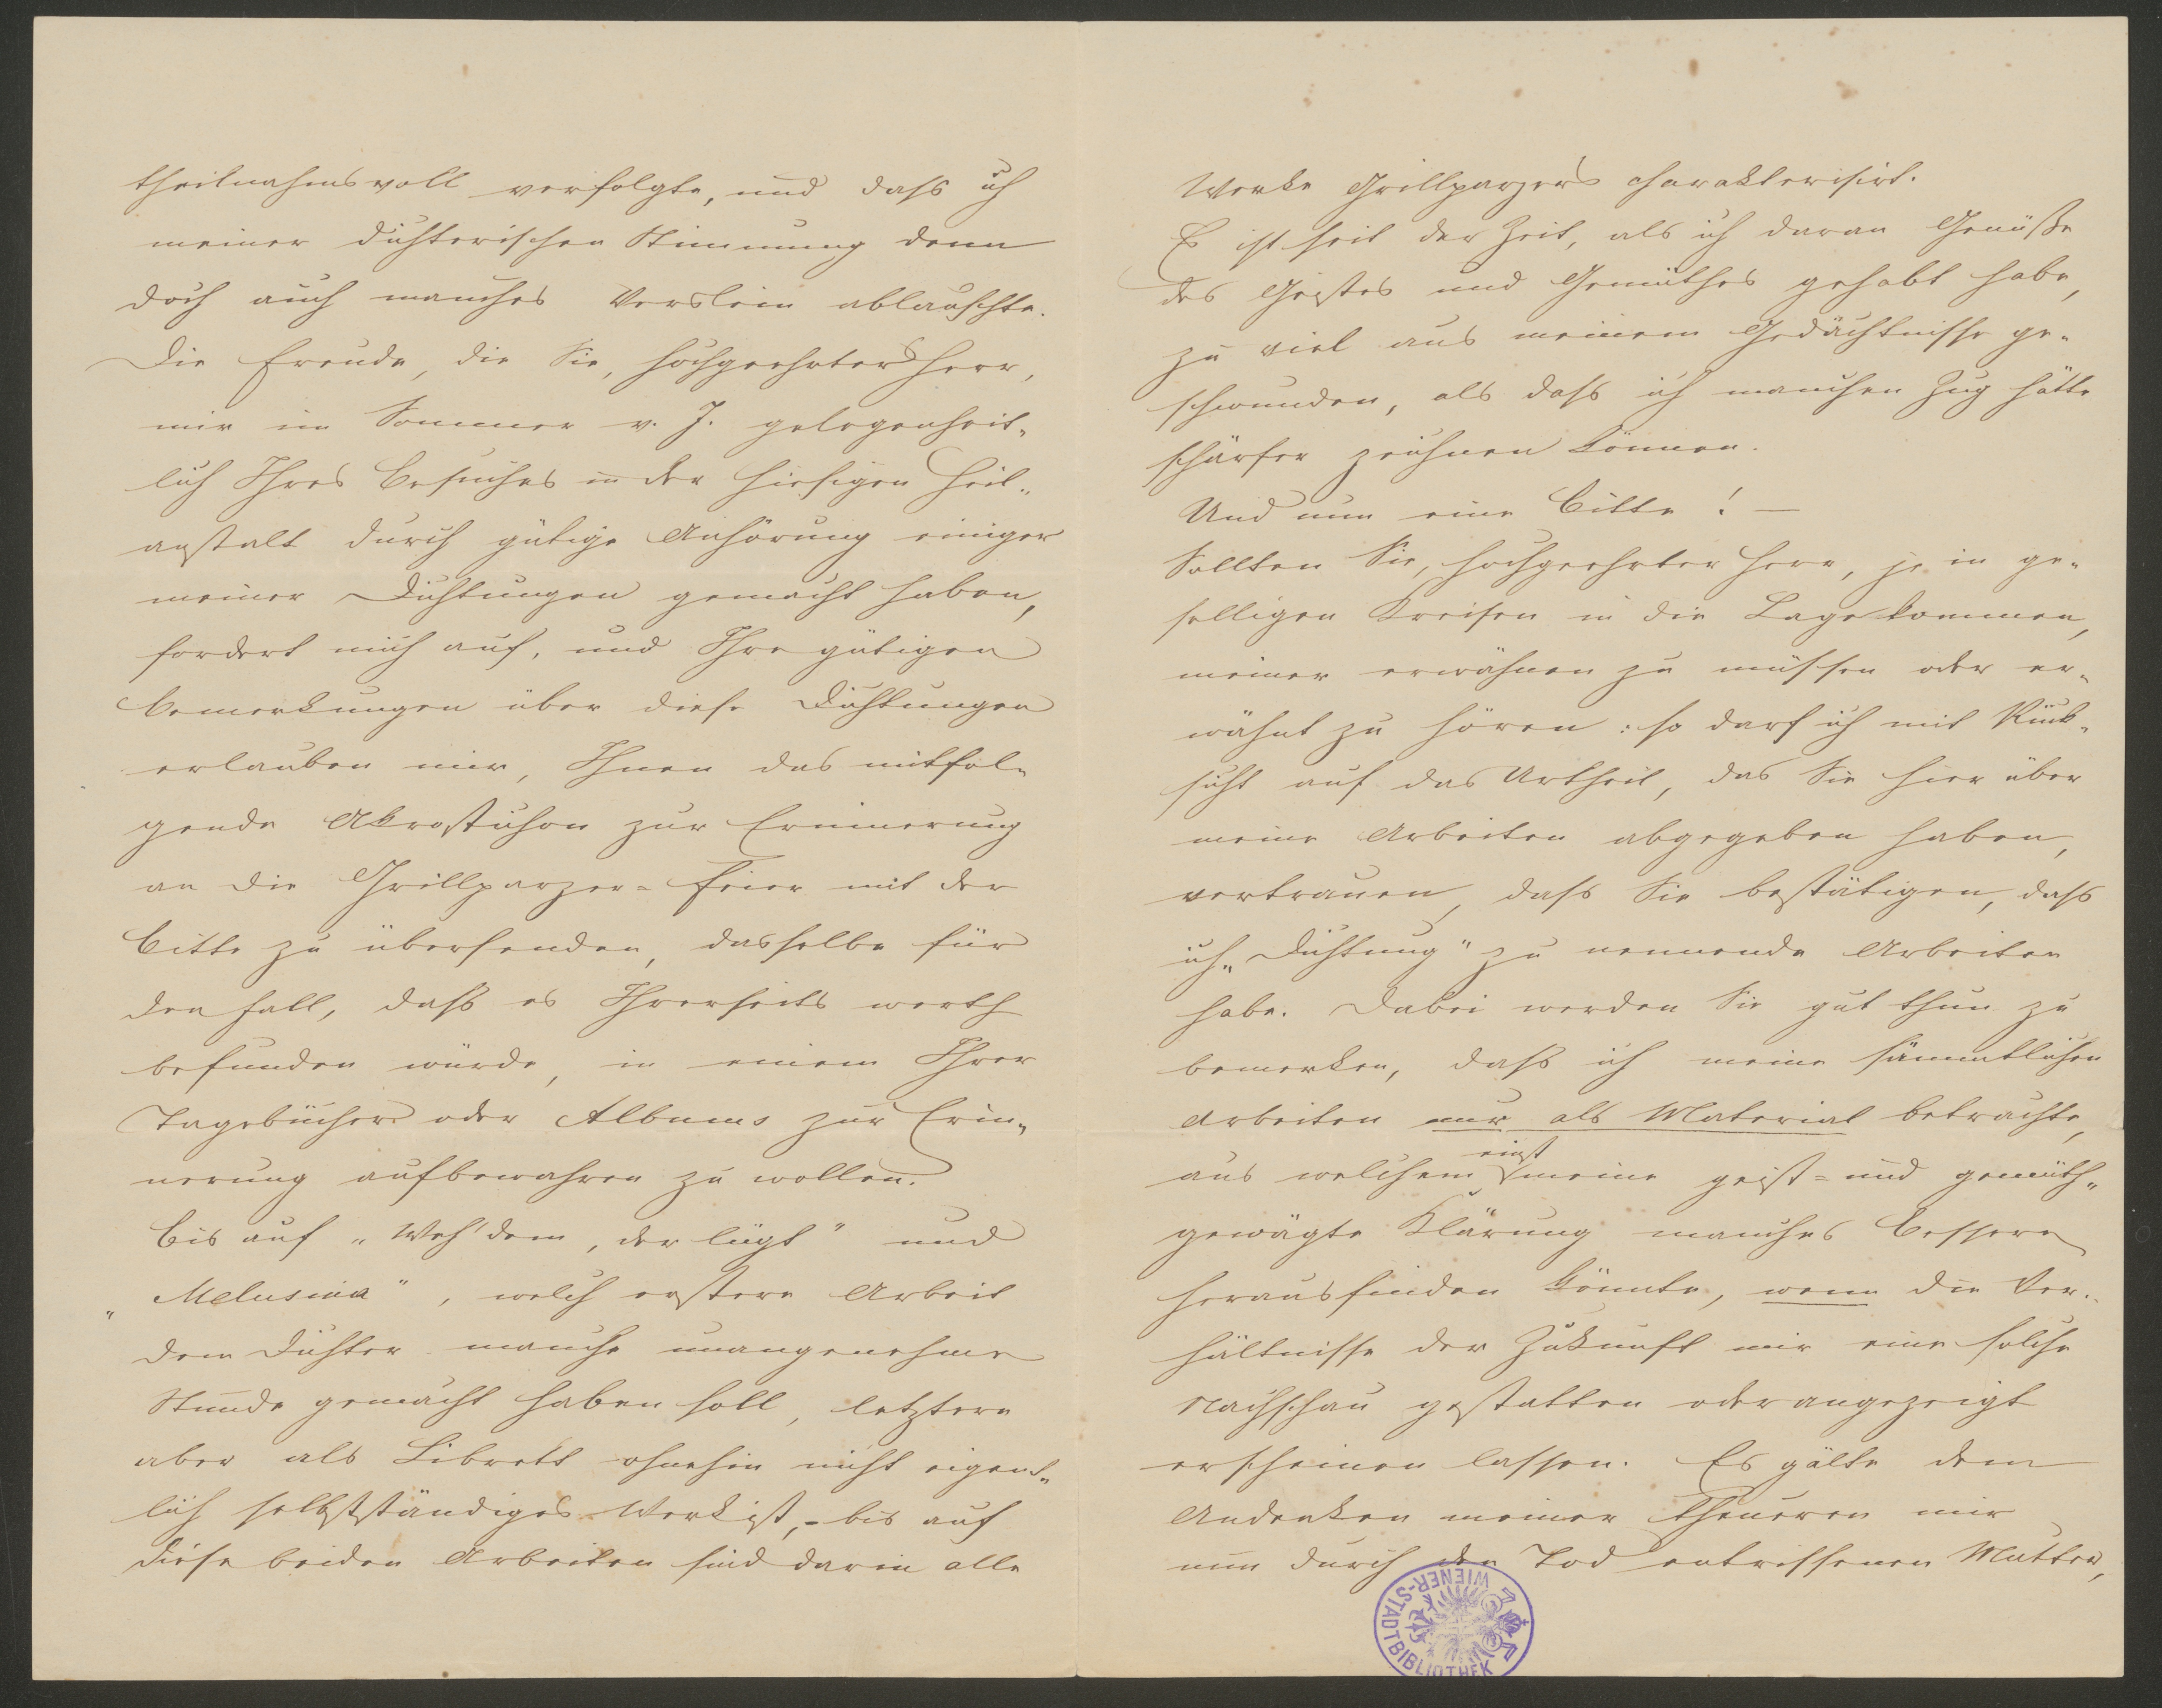 theilnahmsvoll verfolgte, und dass ich
meiner dichterischen Stimmung denn
doch auch manches Verslein ablauschte.
Die Freude, die Sie, hochgeehrter Herr,
mir im Sommer v. J. gelegenheit-
lich Ihres Besuches in der hiesigen Heil-
anstalt durch gütige Anhörung einiger
meiner Dichtungen gemacht haben,
fordert mich auf, und Ihre gütigen
Bemerkungen über diese Dichtungen
erlauben mir, Ihnen das mitfol-
gende Akrostichon zur Erinnerung
an die Grillparzer-Feier mit der
Bitte zu übersenden, dasselbe für
den Fall, dass es Ihrerseits werth
befunden würde, in einem Ihrer
Tagebücher oder Albums zur Erin-
nerung aufbewahren zu wollen.
Bis auf „Weh' dem, der lügt" und
„Melusina", welch erstere Arbeit
dem Dichter manche unangenehme
Stunde gemacht haben soll, letztere
aber als Librett ohnehin nicht eigent-
lich selbstständiges Werk ist, - bis auf
diese beiden Arbeiten sind darin alle
Werke Grillparzers charakterisirt.
Es ist seit der Zeit, als ich daran Genüße
des Geistes und Gemüthes gehabt habe,
zu viel aus meinem Gedächtnisse ge-
schwunden, als dass ich manchen Zug hätte
schärfer zeichnen können.
Und nun eine Bitte! —
Sollten Sie, hochgeehrter Herr, je in ge-
selligen Kreisen in die Lage kommen,
meiner erwähnen zu müssen oder er-
wähnt zu hören: so darf ich mit Rück-
sicht auf das Urtheil, das Sie hier über
meine Arbeiten abgegeben haben,
vertrauen, dass Sie bestätigen, dass
ich „Dichtung" zu nennende Arbeiten
habe. Dabei werden Sie gut thun zu
bemerken, dass ich meine sämmtlichen
Arbeiten nur als Material betrachte,
aus welchem einst meine geist- und gemüth-
gewägte Klärung manches Bessere
herausfinden könnte, wenn die Ver-
hältnisse der Zukunft mir eine solche
Nachschau gestatten oder angezeigt
erscheinen lassen. Es gälte dem
Andenken meiner theueren mir
nun durch den Tod entrissenen Mutter,
WIENER-STADTBIBLIOTHEK